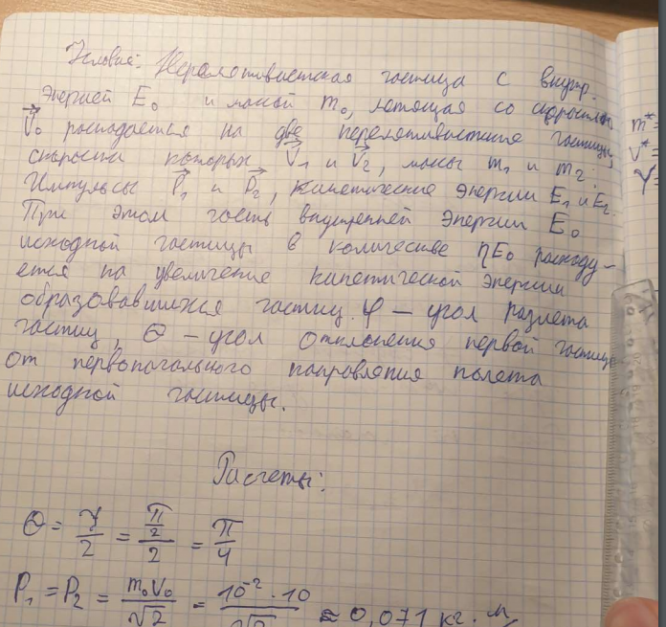 Условие: Нерелятивистская частица с внутр.
энергией E₀ и массой m₀, летящая со скоростью
V⃗₀ распадается на две нерелятивистские частицы,
скорости которых V⃗₁ и V⃗₂, массы m₁ и m₂.
Импульсы P⃗₁ и P⃗₂, кинетические энергии E₁ и E₂.
При этом часть внутренней энергии E₀
исходной частицы в количестве ηE₀ расходу-
ется на увеличение кинетической энергии
образовавшихся частиц. φ — угол разлёта
частиц, Θ — угол отклонения первой частицы
от первоначального направления полета
исходной частицы.
Расчеты:
Θ = γ/2 = (π/2)/2 = π/4
P₁ = P₂ = m₀V₀/√2 = 10⁻²·10/√2 ≈ 0,071 кг · м/
m*=
V*=
γ=